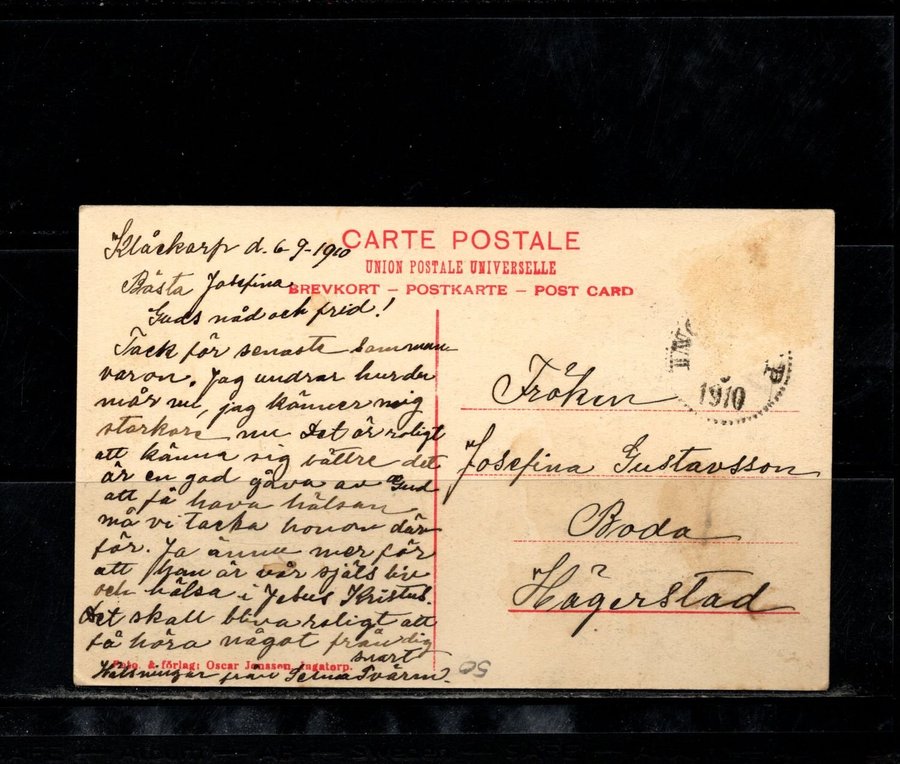 CARTE POSTALE
UNION POSTALE UNIVERSELLE
BREVKORT – POSTKARTE – POST CARD
Klåckarp d. 6 9-1910
Bästa Josefina
Guds nåd och frid!
Tack för senaste samman
varon. Jag undrar hurdu
mår nu, jag känner mig
starkare nu Det är roligt
att känna sig bättre det
är en god gåva av Gud
att få hava hälsan
må vi tacka honom där
för. Ja ännu mer för
att han är vår själs liv
och hälsa i Jesus Kristus.
Det skall bliva roligt att
få höra något från dig
snart
Hälsningar från
Foto. & förlag: Oscar Jansson, Ingatorp.
1910
P
Fröken
Josefina Gustavsson
Boda
Hägerstad
50